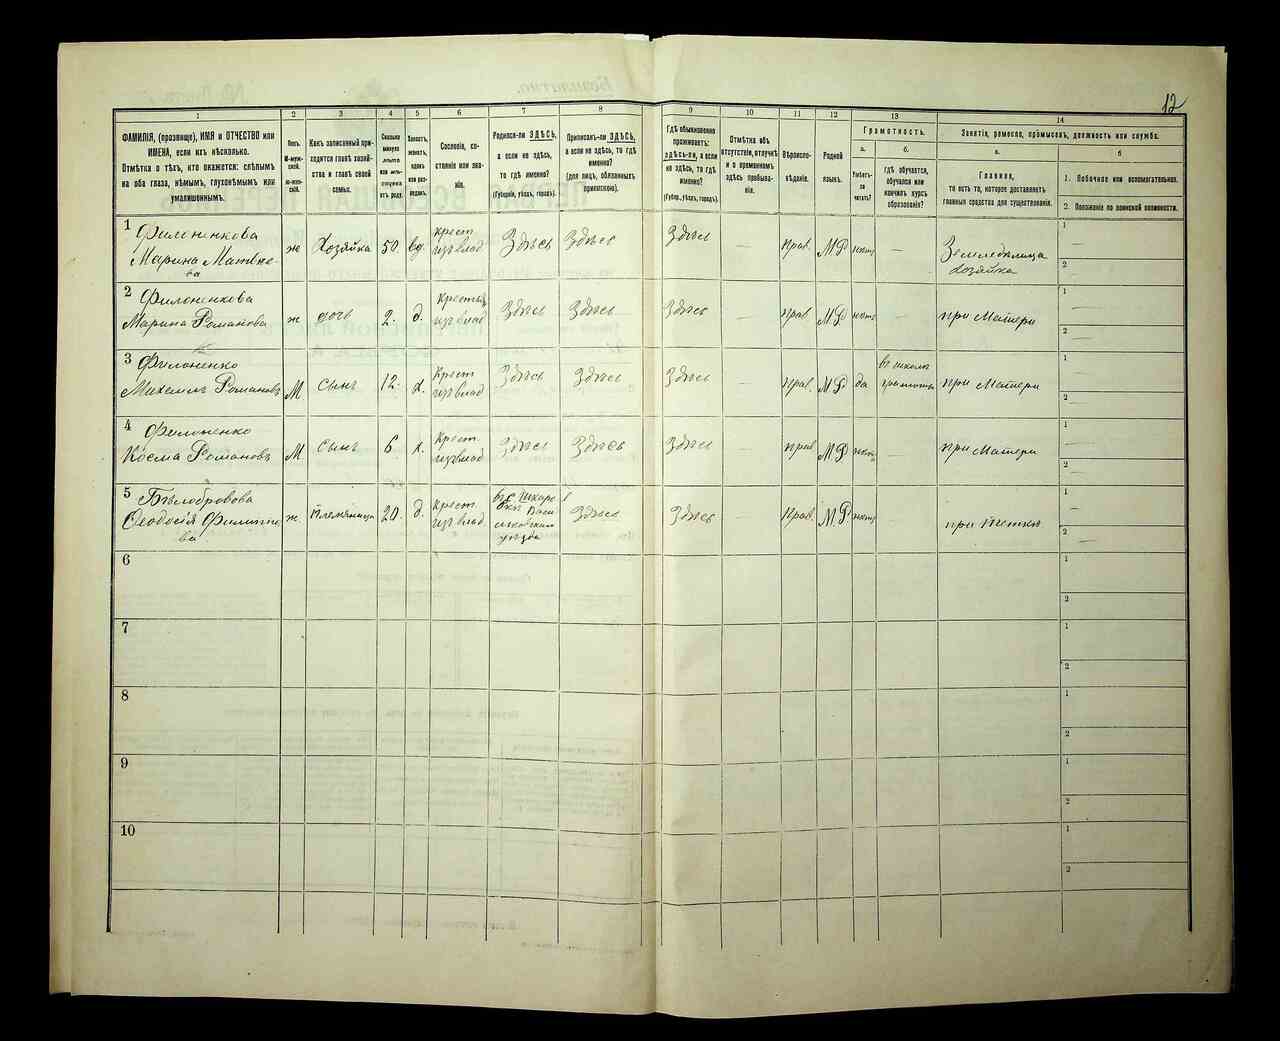 12
1
2
3
4
5
6
7
8
9
10
11
12
13
14
ФАМИЛІЯ, (прозвище), ИМЯ и ОТЧЕСТВО или
ИМЕНА, если ихъ нѣсколько.
Отмѣтка о тѣхъ, кто окажется: слѣпымъ
на оба глаза, нѣмымъ, глухонѣмымъ или
умалишеннымъ.
Полъ.
М-муж-
ской.
Ж-жен-
скій.
Какъ записанный при-
ходится главѣ хозяй-
ства и главѣ своей
семьи.
Сколько
минуло
лѣтъ
или мѣ-
сяцевъ
отъ роду.
Холостъ,
женатъ,
вдовъ
или раз-
веденъ.
Сословіе, со-
стояніе или зва-
ніе.
Родился-ли ЗДѢСЬ,
а если не здѣсь,
то гдѣ именно?
(Губернія, уѣздъ, городъ).
Приписанъ-ли ЗДѢСЬ,
а если не здѣсь, то гдѣ
именно?
(для лицъ, обязанныхъ
припискою).
Гдѣ обыкновенно
проживаетъ:
здѣсь-ли, а если
не здѣсь, то гдѣ
именно?
(Губер., уѣздъ, городъ).
Отмѣтка объ
отсутствіи, отлучкѣ
и о временномъ
здѣсь пребыва-
ніи.
Вѣроиспо-
вѣданіе.
Родной
языкъ.
Грамотность.
а.
Умѣетъ-
ли
читать?
б.
гдѣ обучается,
обучался или
кончилъ курсъ
образованія?
Занятіе, ремесло, промыселъ, должность или служба.
а.
Главное,
то есть то, которое доставляетъ
главныя средства для существованія.
б
1. Побочное или вспомогательное.
2. Положеніе по воинской повинности.
1 Филоненкова
Марина Матвѣе-
ва
ж Хозяйка 50. вд. крест изъ влад Здѣсь Здѣсь Здѣсь — Прав. М.Р нѣтъ — Земледѣлица
хозяйка
1 —
2 —
2 Филоненкова
Марина Романова
ж дочь 2. д. Крестья изъ влад Здѣсь Здѣсь Здѣсь — Прав М.Р нѣтъ — при Матери
1 —
2 —
3 Филоненко
Михаилъ Романовъ
М. сынъ 12. х. Крест изъ влад Здѣсь Здѣсь Здѣсь — Прав. М.Р да въ школѣ
грамоты
при Матери
1 —
2 —
4 Филоненко
Косма Романовъ
М сынъ 6. х. Крест. изъ влад Здѣсь Здѣсь Здѣсь — прав М.Р нѣтъ — при Матери
1 —
2 —
5 Бѣлобровова
Ѳеодосія Филиппо
ва
ж. племяница 20. д. Крест. изъ влад. въ с. Шкаров
кѣ Васи
льковскаго
уѣзда
Здѣсь Здѣсь — Прав. М.Р. нѣтъ — при тёткѣ
1 —
2 —
6
1
2
7
1
2
8
1
2
9
1
2
10
1
2